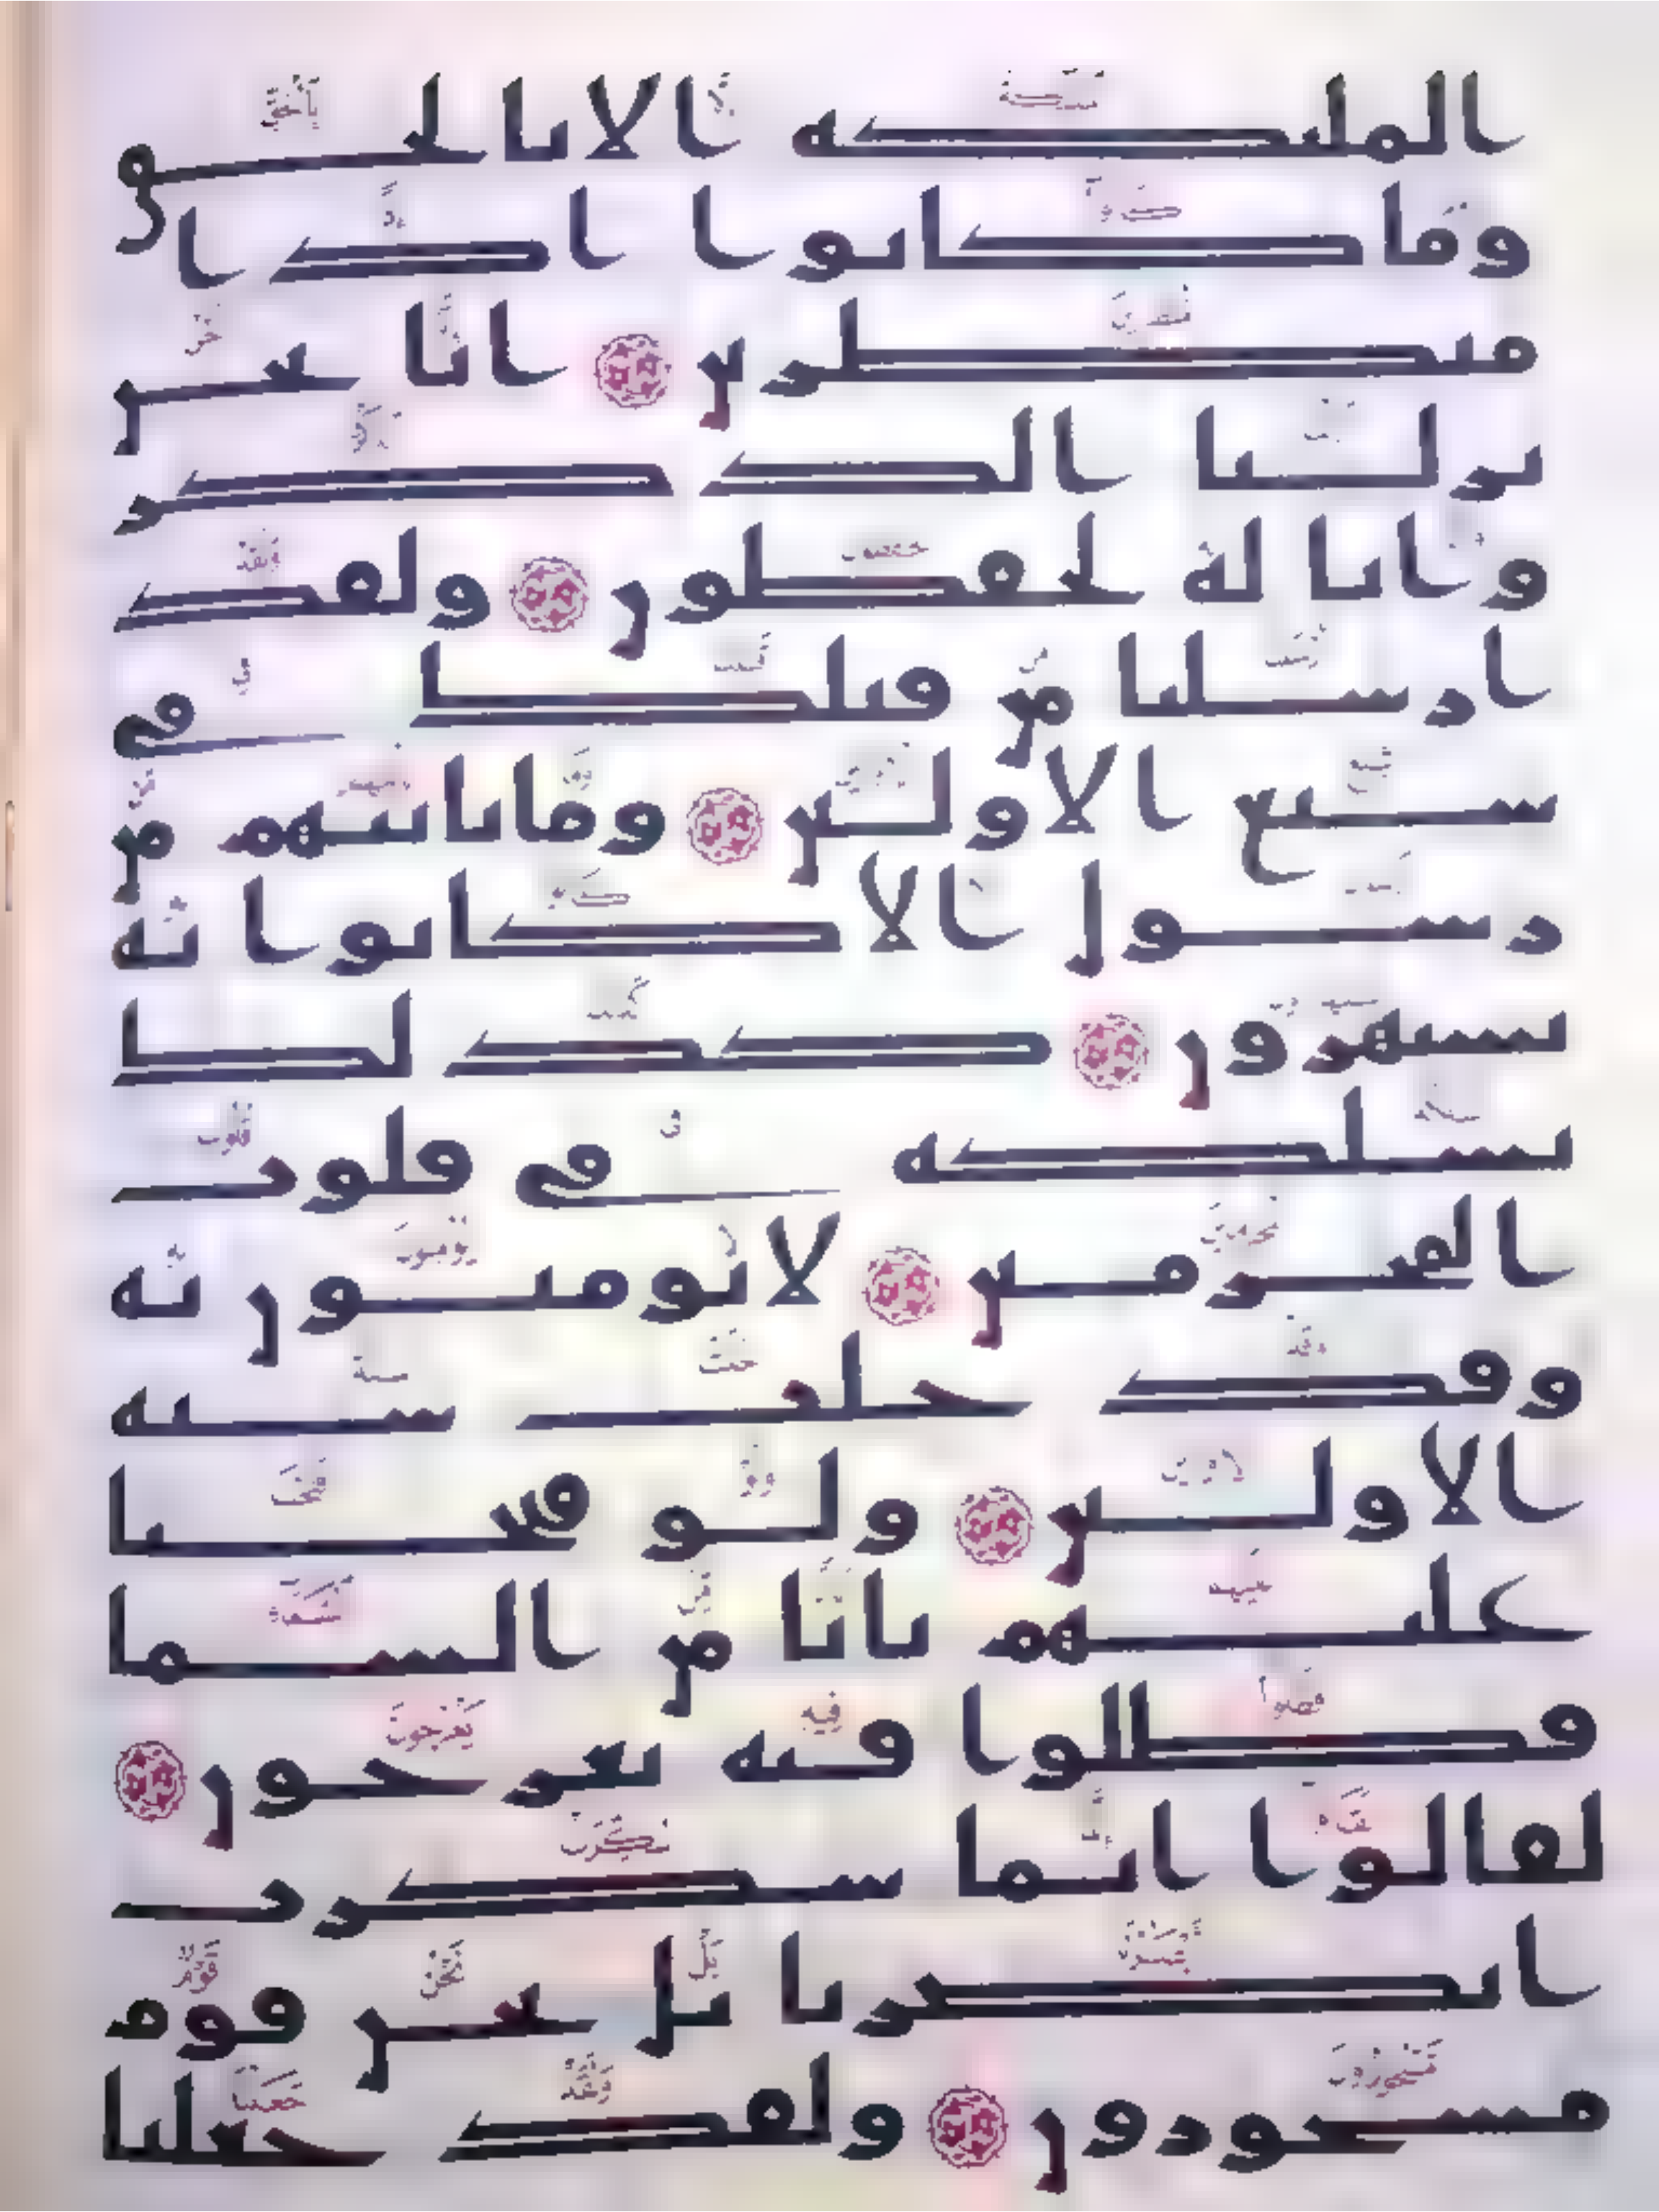 الملئكة الا بالحق
وما كانوا اذا
منظرين انا نحن
نزلنا الذكر
وانا له لحفظون ولقد
ارسلنا من قبلك في
شيع الاولين وما ياتيهم من
رسول الا كانوا به
يستهزون كذلك
نسلكه في قلوب
المجرمين لا يومنون به
وقد خلت سنة
الاولين ولو فتحنا
عليهم بابا من السما
فظلوا فيه يعرجون
لقالوا انما سكرت
ابصرنا بل نحن قوم
مسحورون ولقد جعلنا